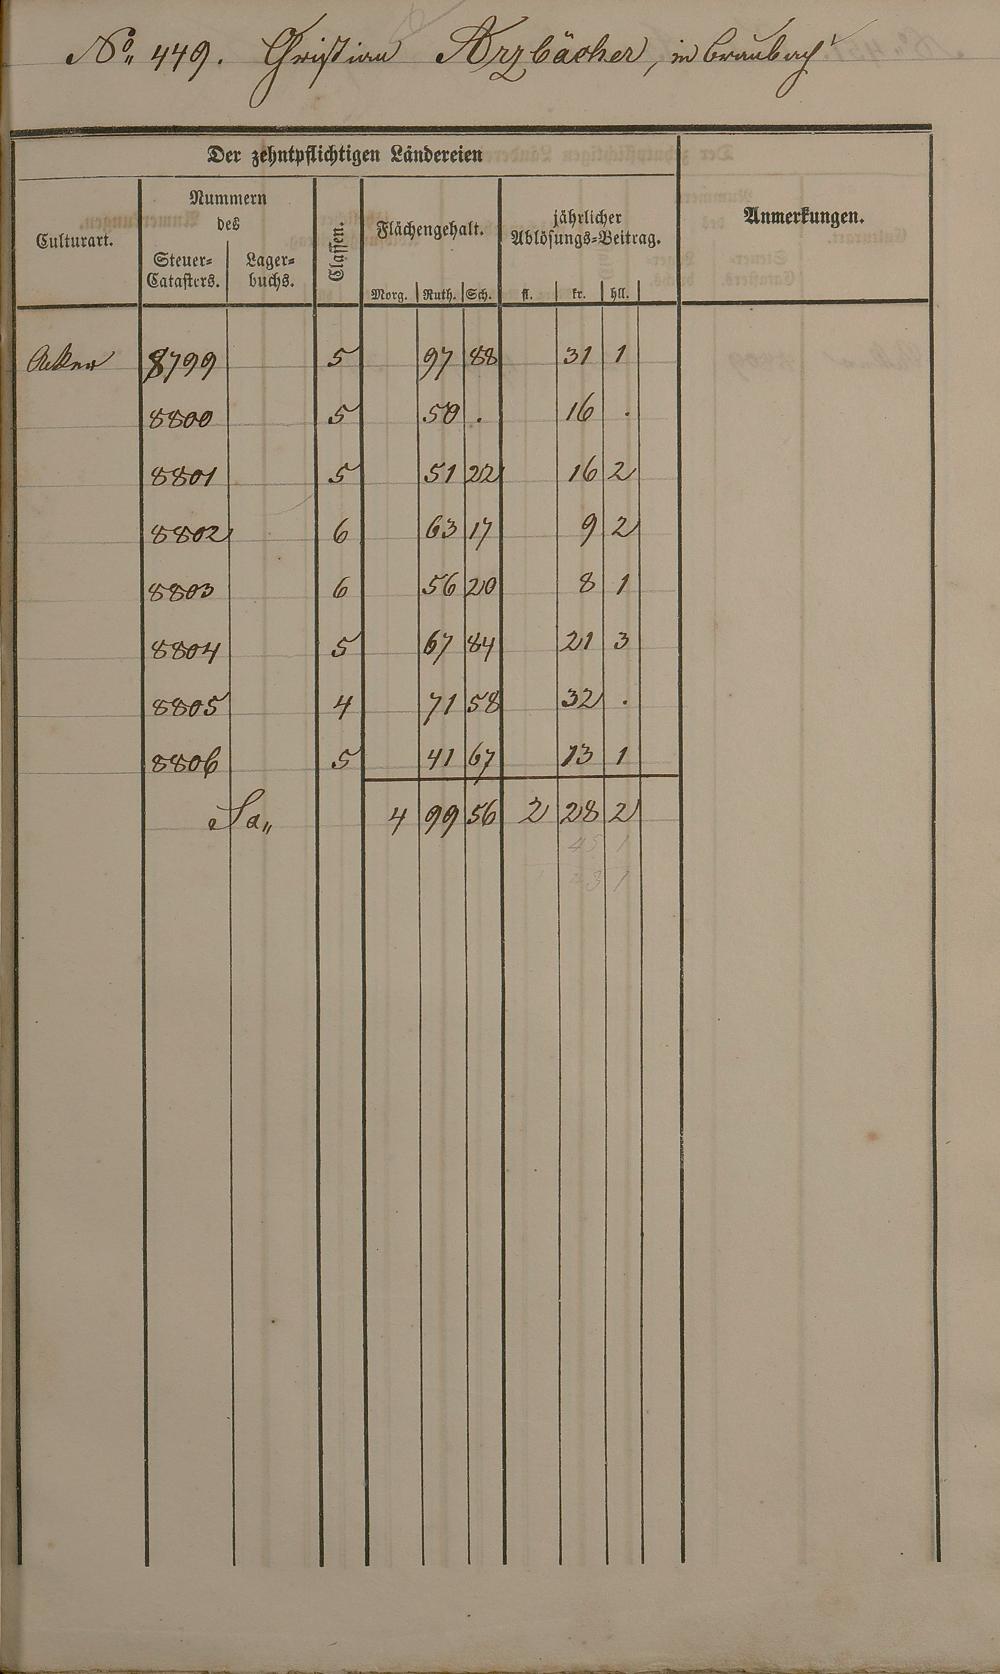 No 449. Christian Arzbächer, in Braubach
Der zehntpflichtigen Ländereien
Culturart.
Nummern
des
Steuer-
Catasters.
Lager-
buchs.
Classen.
Flächengehalt.
Morg. Ruth. Sch.
jährlicher
Ablösungs-Beitrag.
fl. kr. hll.
Anmerkungen.
Acker 8799 5 97 88 31 1
8800 5 50 . 16 .
8801 5 51 22 16 2
8802 6 63 17 9 2
8803 6 56 20 8 1
8804 5 67 84 21 3
8805 4 71 58 32 .
8806 5 41 67 13 1
Sa„ 4 99 56 2 28 2
45 1